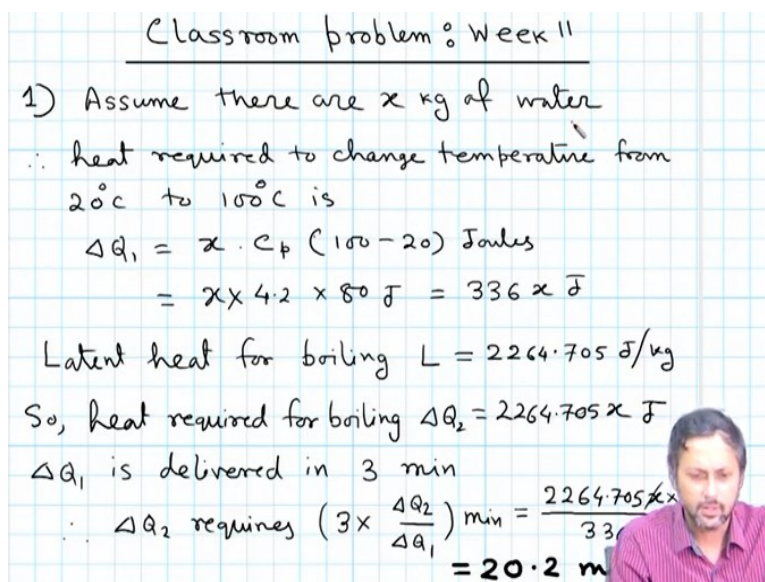 Classroom problem: Week 11
1) Assume there are x kg of water
∴ heat required to change temperature from
20°C to 100°C is
ΔQ₁ = x . Cp (100-20) Joules
= x × 4.2 × 80 J = 336 x J
Latent heat for boiling L = 2264.705 J/kg
So, heat required for boiling ΔQ₂ = 2264.705 x J
ΔQ₁ is delivered in 3 min
∴ ΔQ₂ requires (3 × ΔQ₂/ΔQ₁) min = 2264.705 x ×/33
= 20.2 m